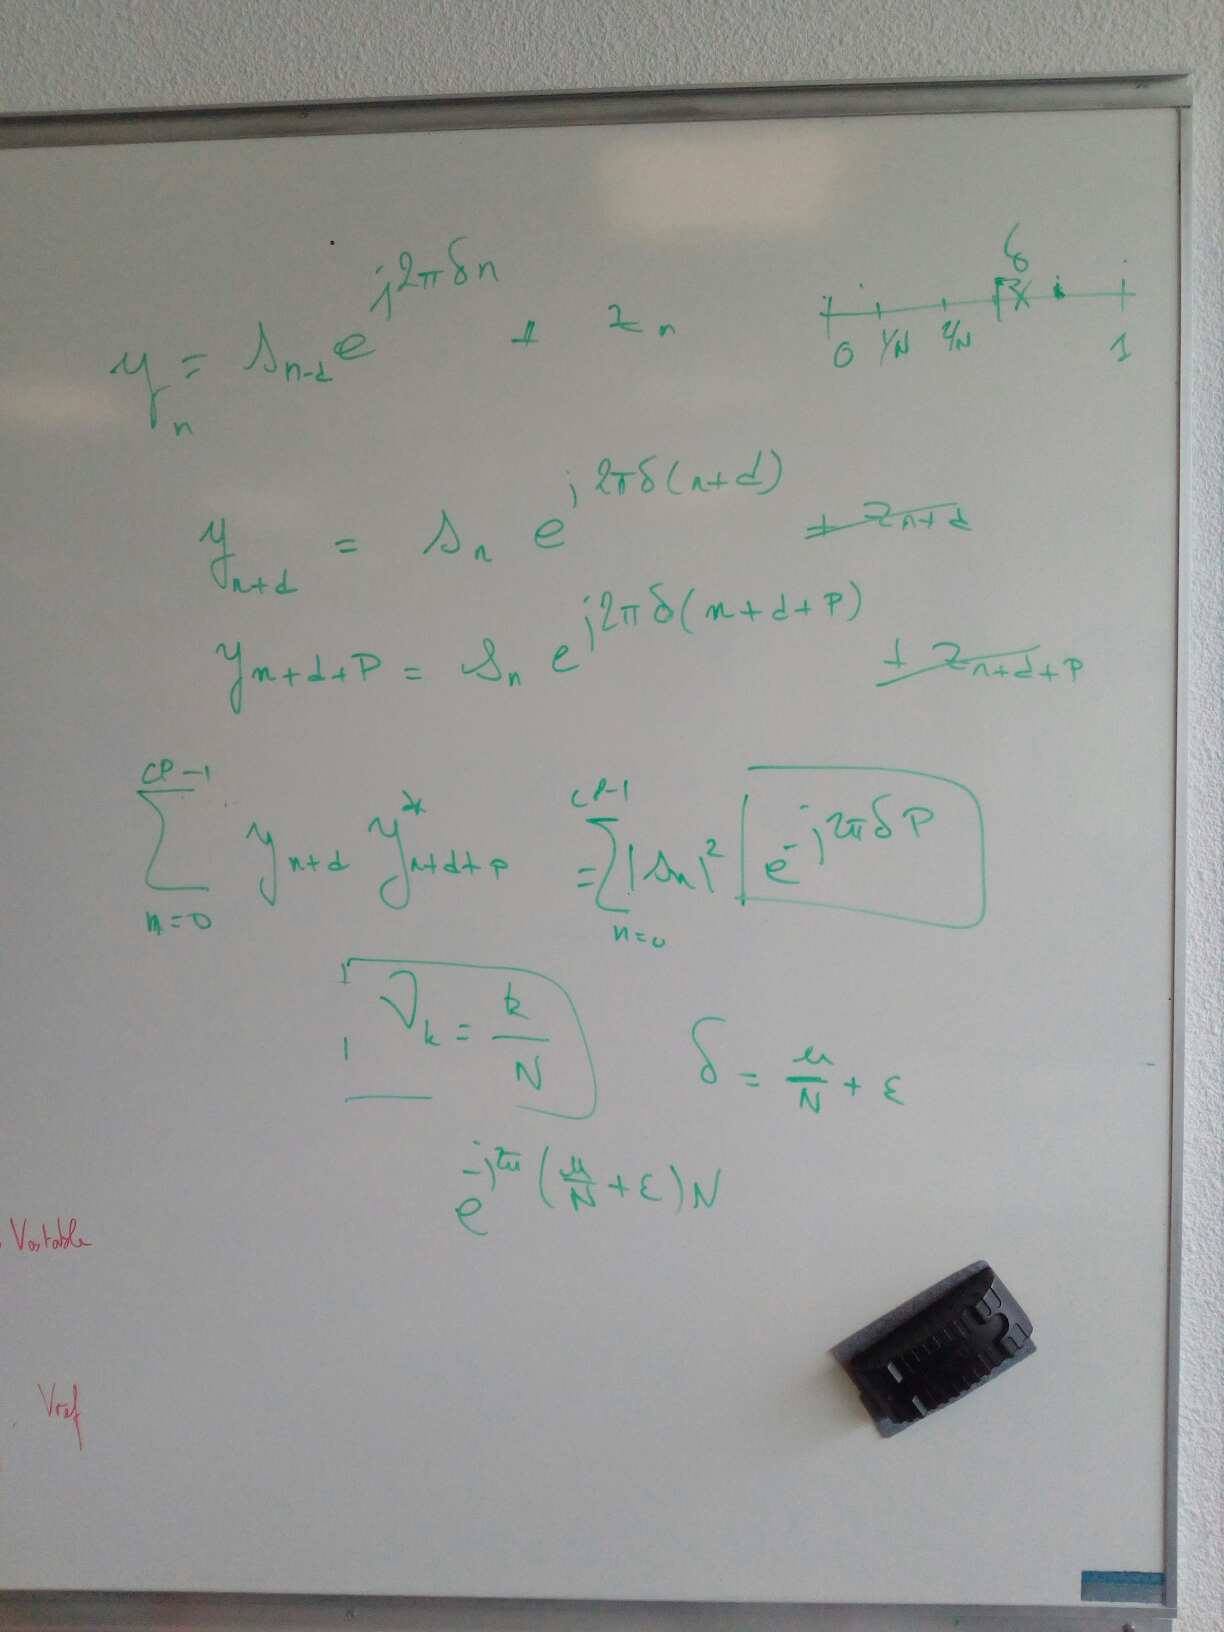 y_n = s_{n-d} e^{j2πδn} + z_n
δ
0 1/N 2/N 1
y_{n+d} = s_n e^{j2πδ(n+d)} + z_{n+d}
y_{n+d+P} = s_n e^{j2πδ(n+d+P)} + z_{n+d+P}
∑_{n=0}^{CP-1} y_{n+d} y*_{n+d+P} = ∑_{n=0}^{CP-1} |s_n|² e^{-j2πδP}
ν_k = k/N
δ = μ/N + ε
e^{-j2π(μ/N + ε)N}
Vastable
Vref